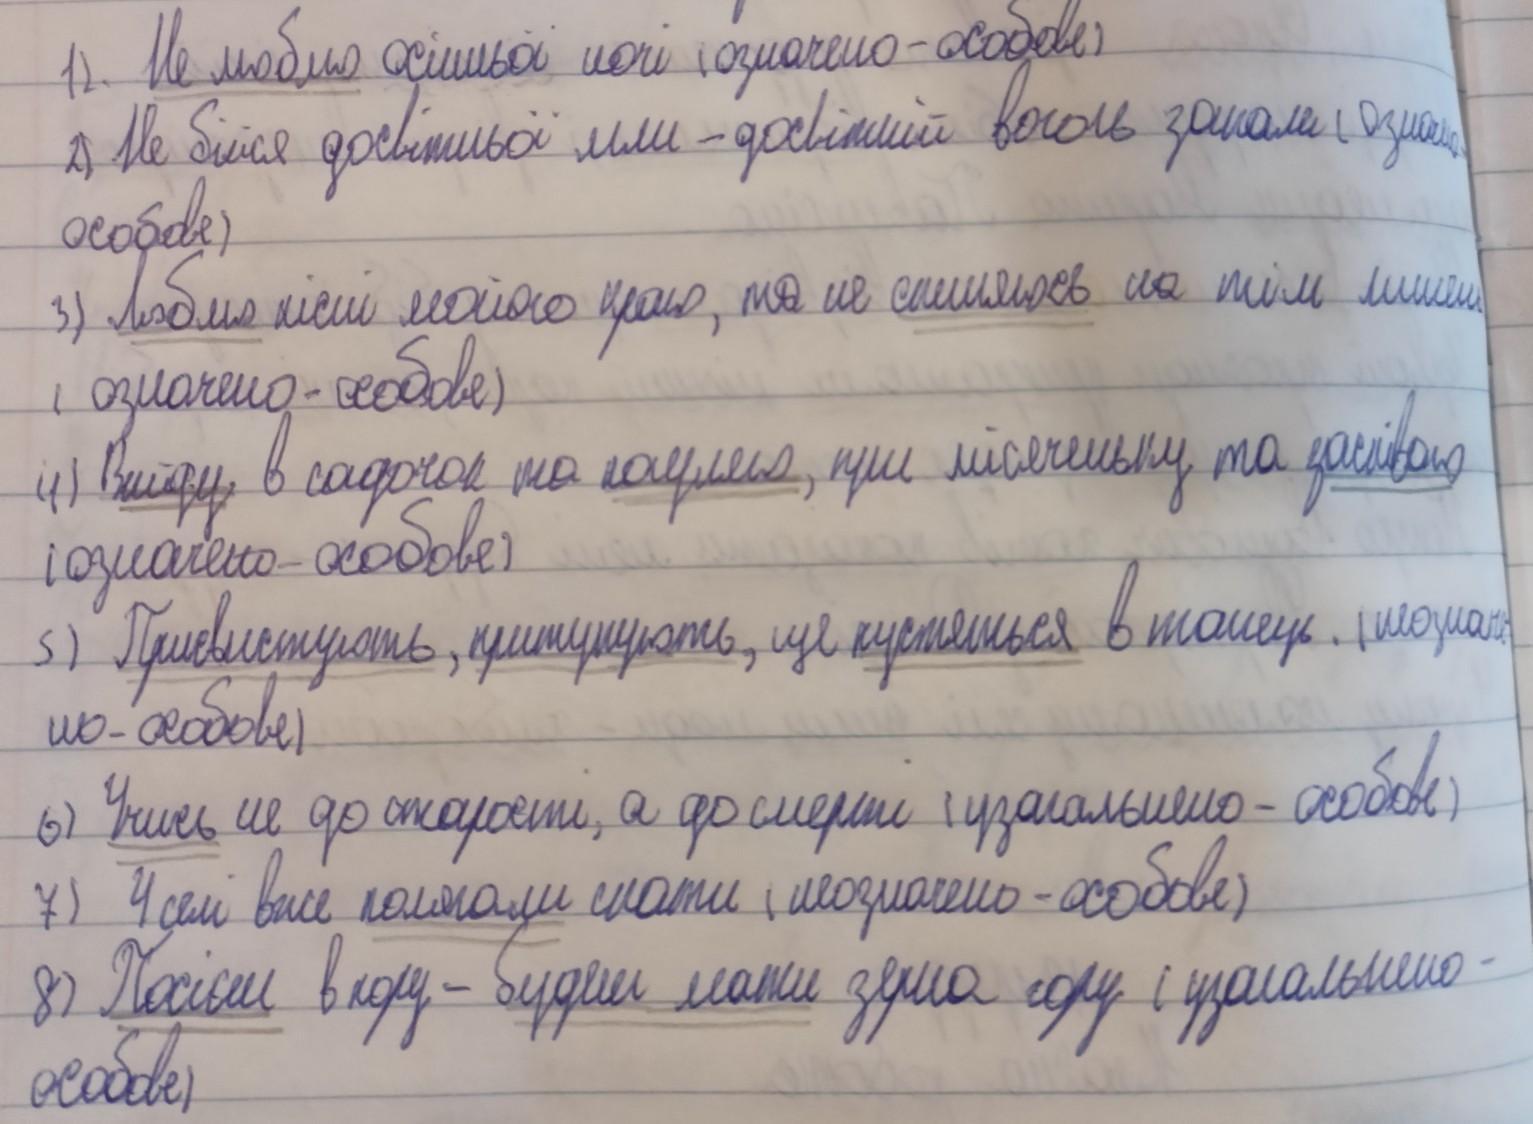 1). Не люблю осінньої ночі (означено-особове)
2) Не бійся досвітньої мли - досвітній вогонь запали (означено-
особове)
3) Люблю пісні мойого краю, та не спиняюсь на тім лишень
(означено-особове)
4) Вийду, в садочок та погуляю, при місяченьку та заспіваю
(означено-особове)
5) Присвистують, притупують, ще пустяться в танець. (неозначе-
но-особове)
6) Учись не до старости, а до смерті (узагальнено-особове)
7) У селі вже полягали спати (неозначено-особове)
8) Посієш впору - будеш мати зерна гору (узагальнено-
особове)